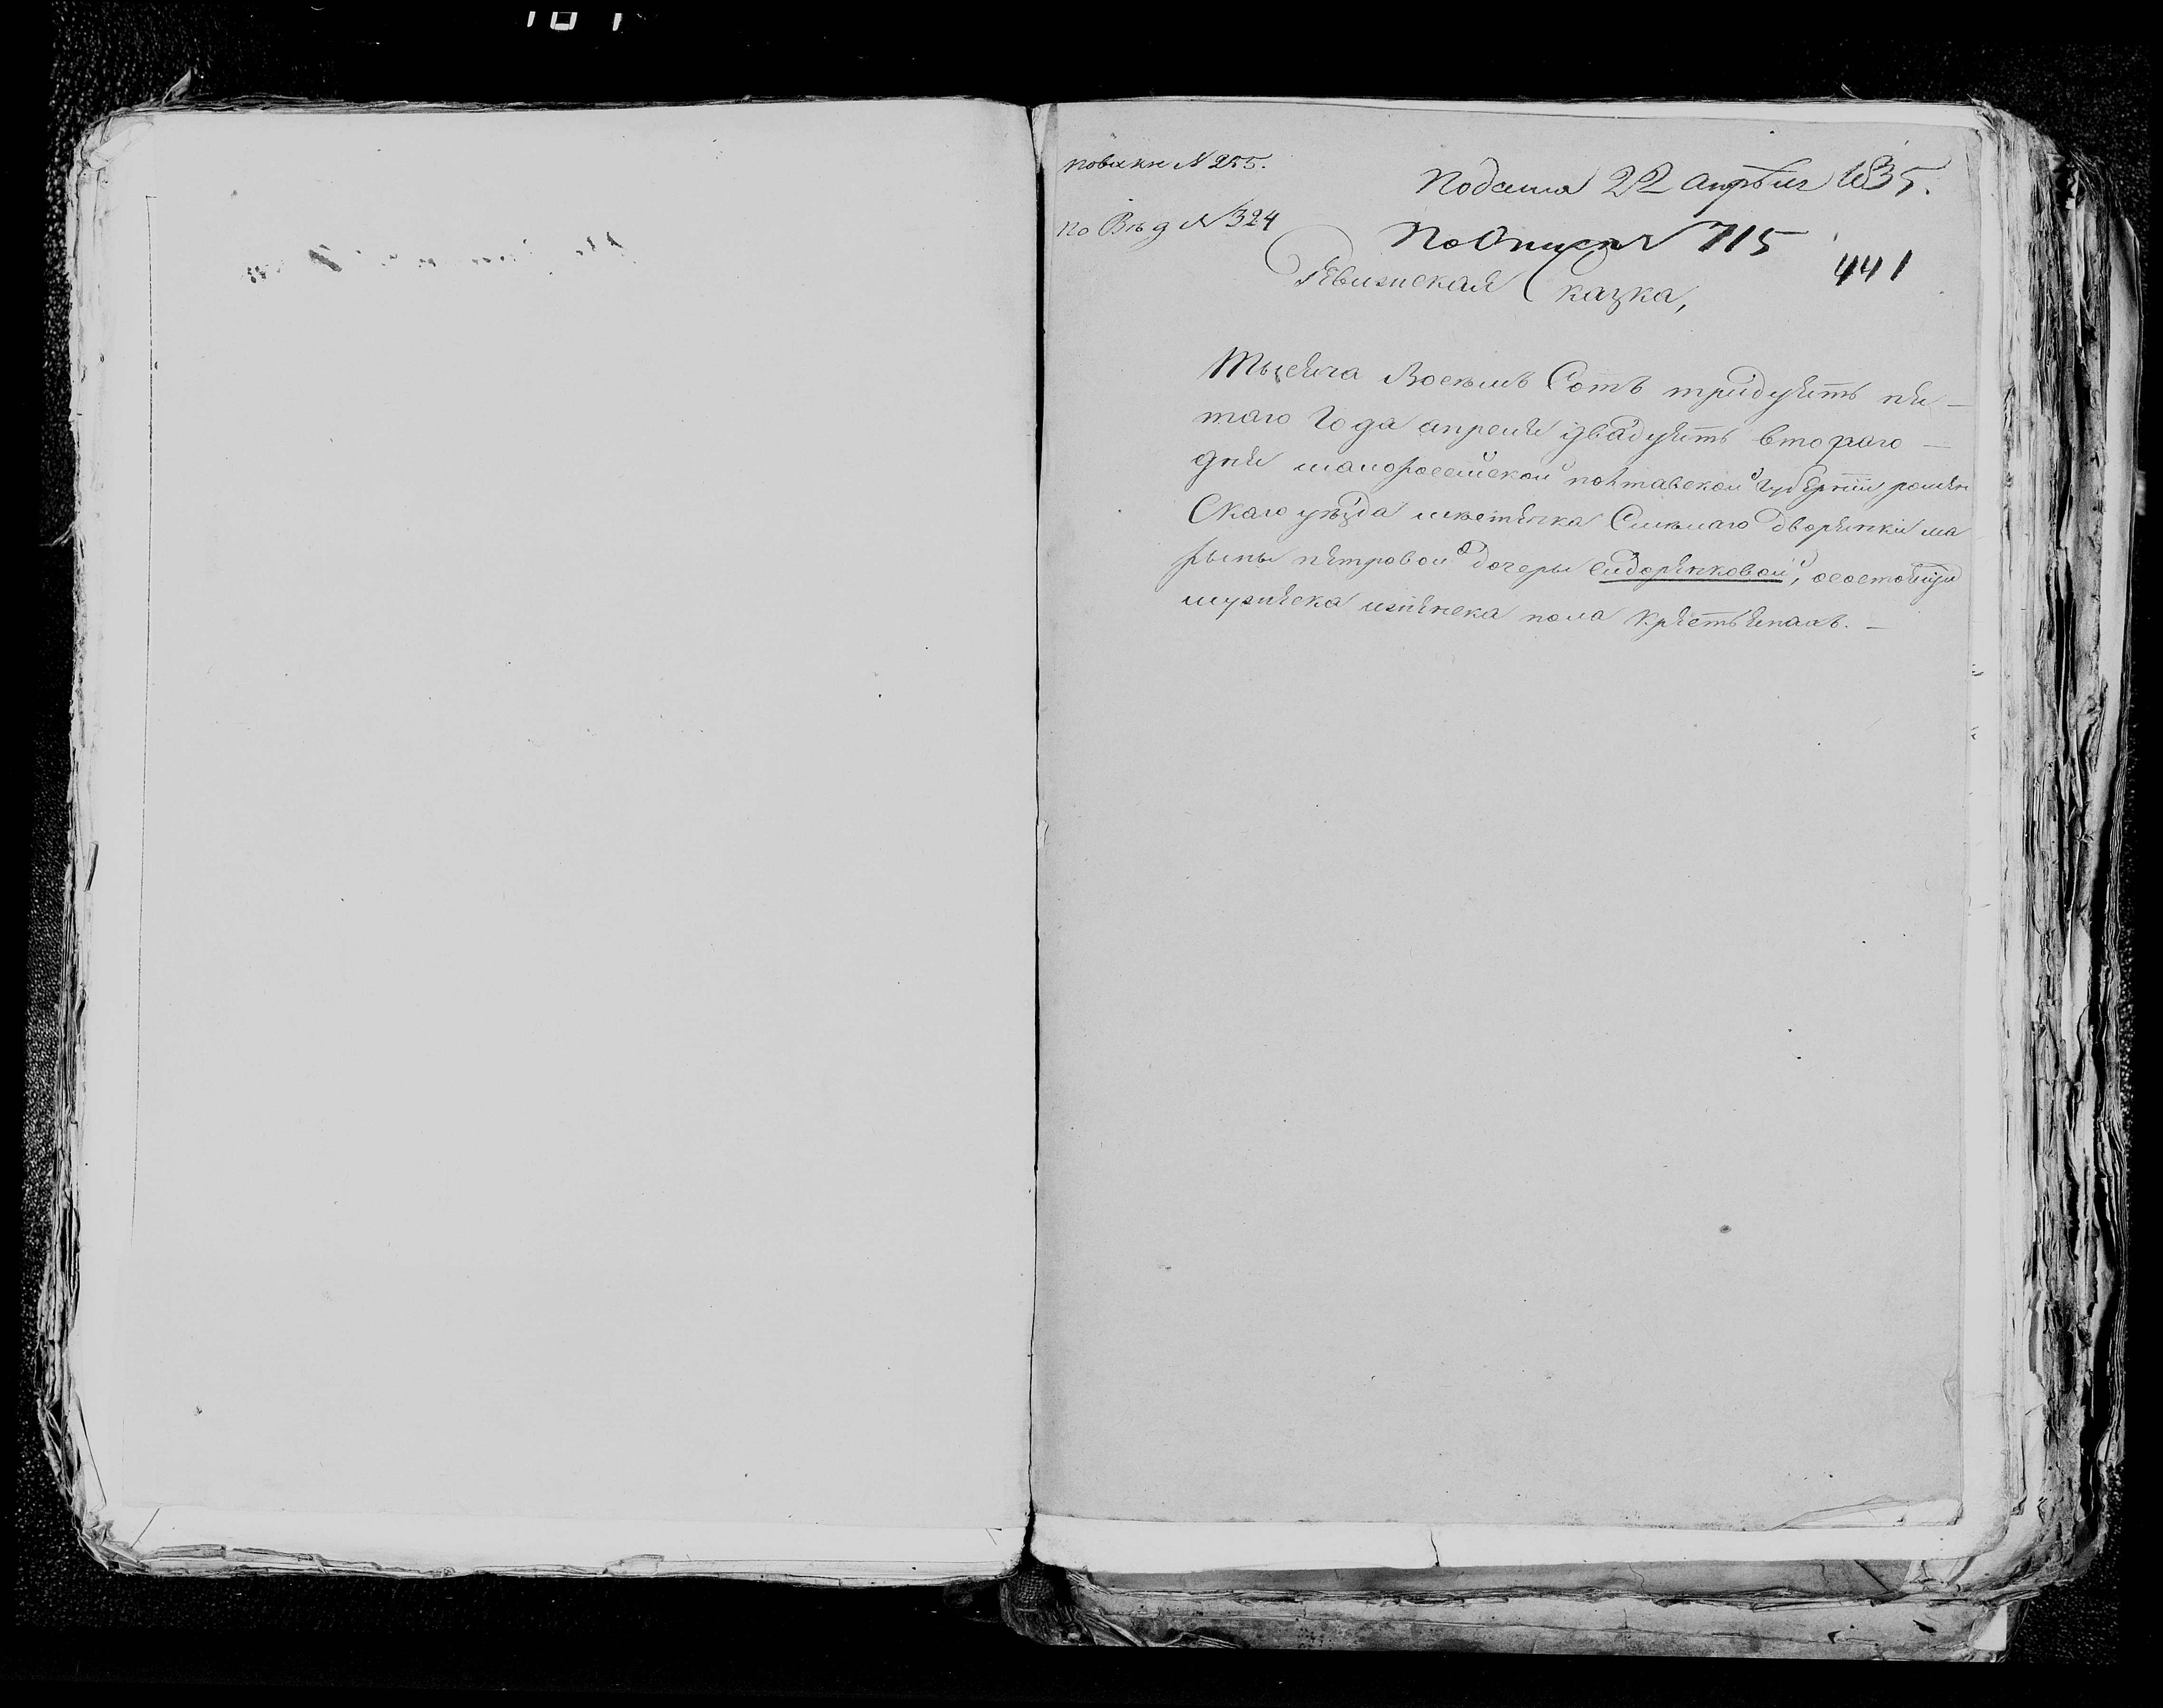 по вх кн № 255.
Подана 22 апрѣля 1835.
По Вѣд № 324
По Описи № 715
441
Ревизская Сказка,
Тысяча Восемь Сотъ тридцять пя-
таго Года апреля двадцять втораго -
дня малороссійской полтавской Губерніи ромен
Скаго уѣзда местечка Смелаго дворянки ма
рыны петровой дочеры сидоренковой, осостоящи
мужеска иженска пола крестьянахъ. -